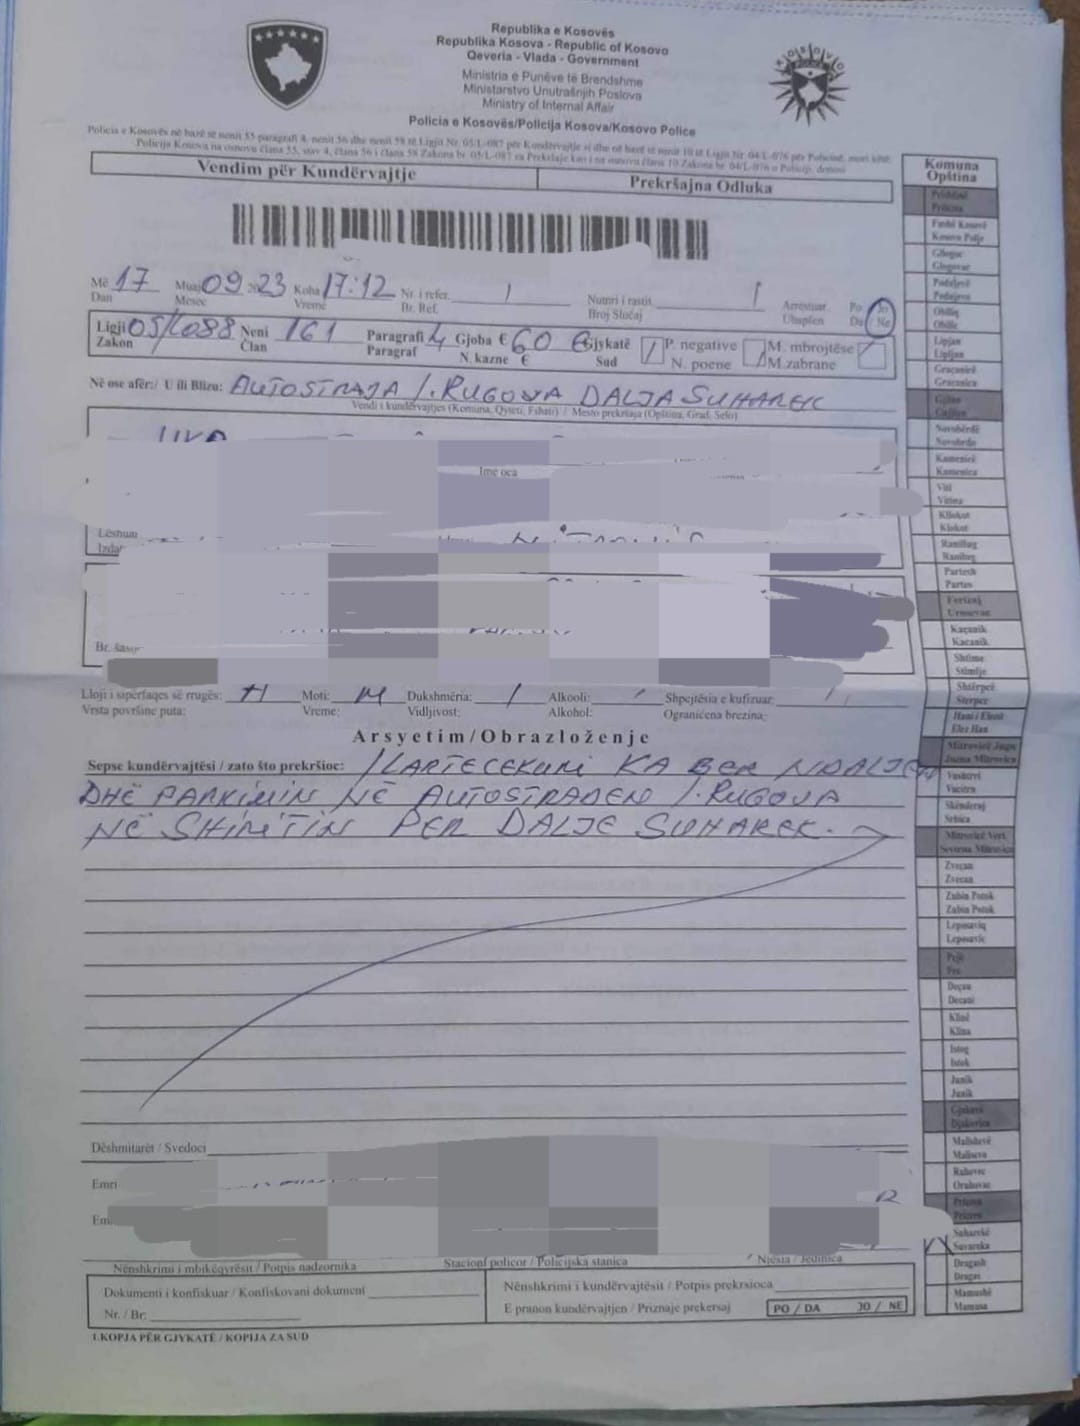 Republika e Kosovës
Republika Kosova - Republic of Kosovo
Qeveria - Vlada - Government
Ministria e Punëve të Brendshme
Ministarstvo Unutrašnjih Poslova
Ministry of Internal Affair
Policia e Kosovës/Policija Kosova/Kosovo Police
Policia e Kosovës në bazë të nenit 55 paragrafi 4, nenit 56 dhe nenit 58 të Ligjit Nr. 05/L-087 për Kundërvajtje si dhe në bazë të nenit 10 të Ligjit Nr. 04/L-076 për Policinë, merr këtë:
Policija Kosova na osnovu člana 55, stav 4, člana 56 i člana 58 Zakona br. 05/L-087 za Prekršaje kao i na osnovu člana 10 Zakona br. 04/L-076 o Policiji, donosi
Vendim për Kundërvajtje Prekršajna Odluka
Më 17 Muaj 09 2023 Koha 17:12 Nr. i refer. / Numri i rastit /
Dan Mesec Vreme Br. Ref. Broj Slučaj
Arrestuar Po Jo
Uhapšen Da / Ne
Ligji 05/L088 Neni 161 Paragrafi 4 Gjoba € 60 € Gjykatë / P. negative / M. mbrojtëse /
Zakon Član Paragraf N. kazne € Sud N. poene M. zabrane
Në ose afër:/ U ili Blizu: AUTOSTRAJA I.RUGOVA DALJA SUHAREK
Vendi i kundërvajtjes (Komuna, Qyteti, Fshati) / Mesto prekršaja (Opština, Grad, Selo)
Ime oca
Lëshuar
Br. šasije
Lloji i sipërfaqes së rrugës: H Moti: M Dukshmëria: / Alkooli: / Shpejtësia e kufizuar: /
Vrsta površine puta: Vreme: Vidljivost: Alkohol: Ograničena brezina:
Arsyetim/Obrazloženje
Sepse kundërvajtësi / zato što prekršioc: I LARTECEKURI KA BER NDALJEN
DHË PARKIMIN NË AUTOSTRADEN I.RUGOVA
NË SHIRITIN PER DALJE SUHAREK.
Dëshmitarët / Svedoci
Emri
Nënshkrimi i mbikëqyrësit / Potpis nadzornika Stacioni policor / Policijska stanica Njësia / Jedinica
Dokumenti i konfiskuar / Konfiskovani dokument
Nr. / Br:
Nënshkrimi i kundërvajtësit / Potpis prekrsioca
E pranon kundërvajtjen / Priznaje prekersaj PO / DA JO / NE
1.KOPJA PËR GJYKATË / KOPIJA ZA SUD
Komuna
Opština
Prishtinë
Pristina
Fushë Kosovë
Kosovo Polje
Gllogoc
Glogovac
Podujevë
Podujevo
Obiliq
Obilic
Lipjan
Lipljan
Graçanicë
Gracanica
Gjilan
Gnjilane
Novobërdë
Novobrdo
Kamenicë
Kamenica
Viti
Vitina
Kllokot
Klokot
Ranillug
Ranilug
Partesh
Partes
Ferizaj
Urosevac
Kaçanik
Kacanik
Shtime
Stimlje
Shtërpcë
Sterpce
Hani i Elezit
Elez Han
Mitrovicë Jugu
Juzna Mitrovica
Vushtrri
Vucitrn
Skënderaj
Srbica
Mitrovicë Veri
Severna Mitrovica
Zveçan
Zvecan
Zubin Potok
Zubin Potok
Leposaviq
Leposavic
Pejë
Pec
Deçan
Decani
Klinë
Klina
Istog
Istok
Junik
Junik
Gjakovë
Djakovica
Malishevë
Malisevo
Rahovec
Orahovac
Prizren
Prizren
Suharekë
Suvareka
Dragash
Dragas
Mamushë
Mamusa